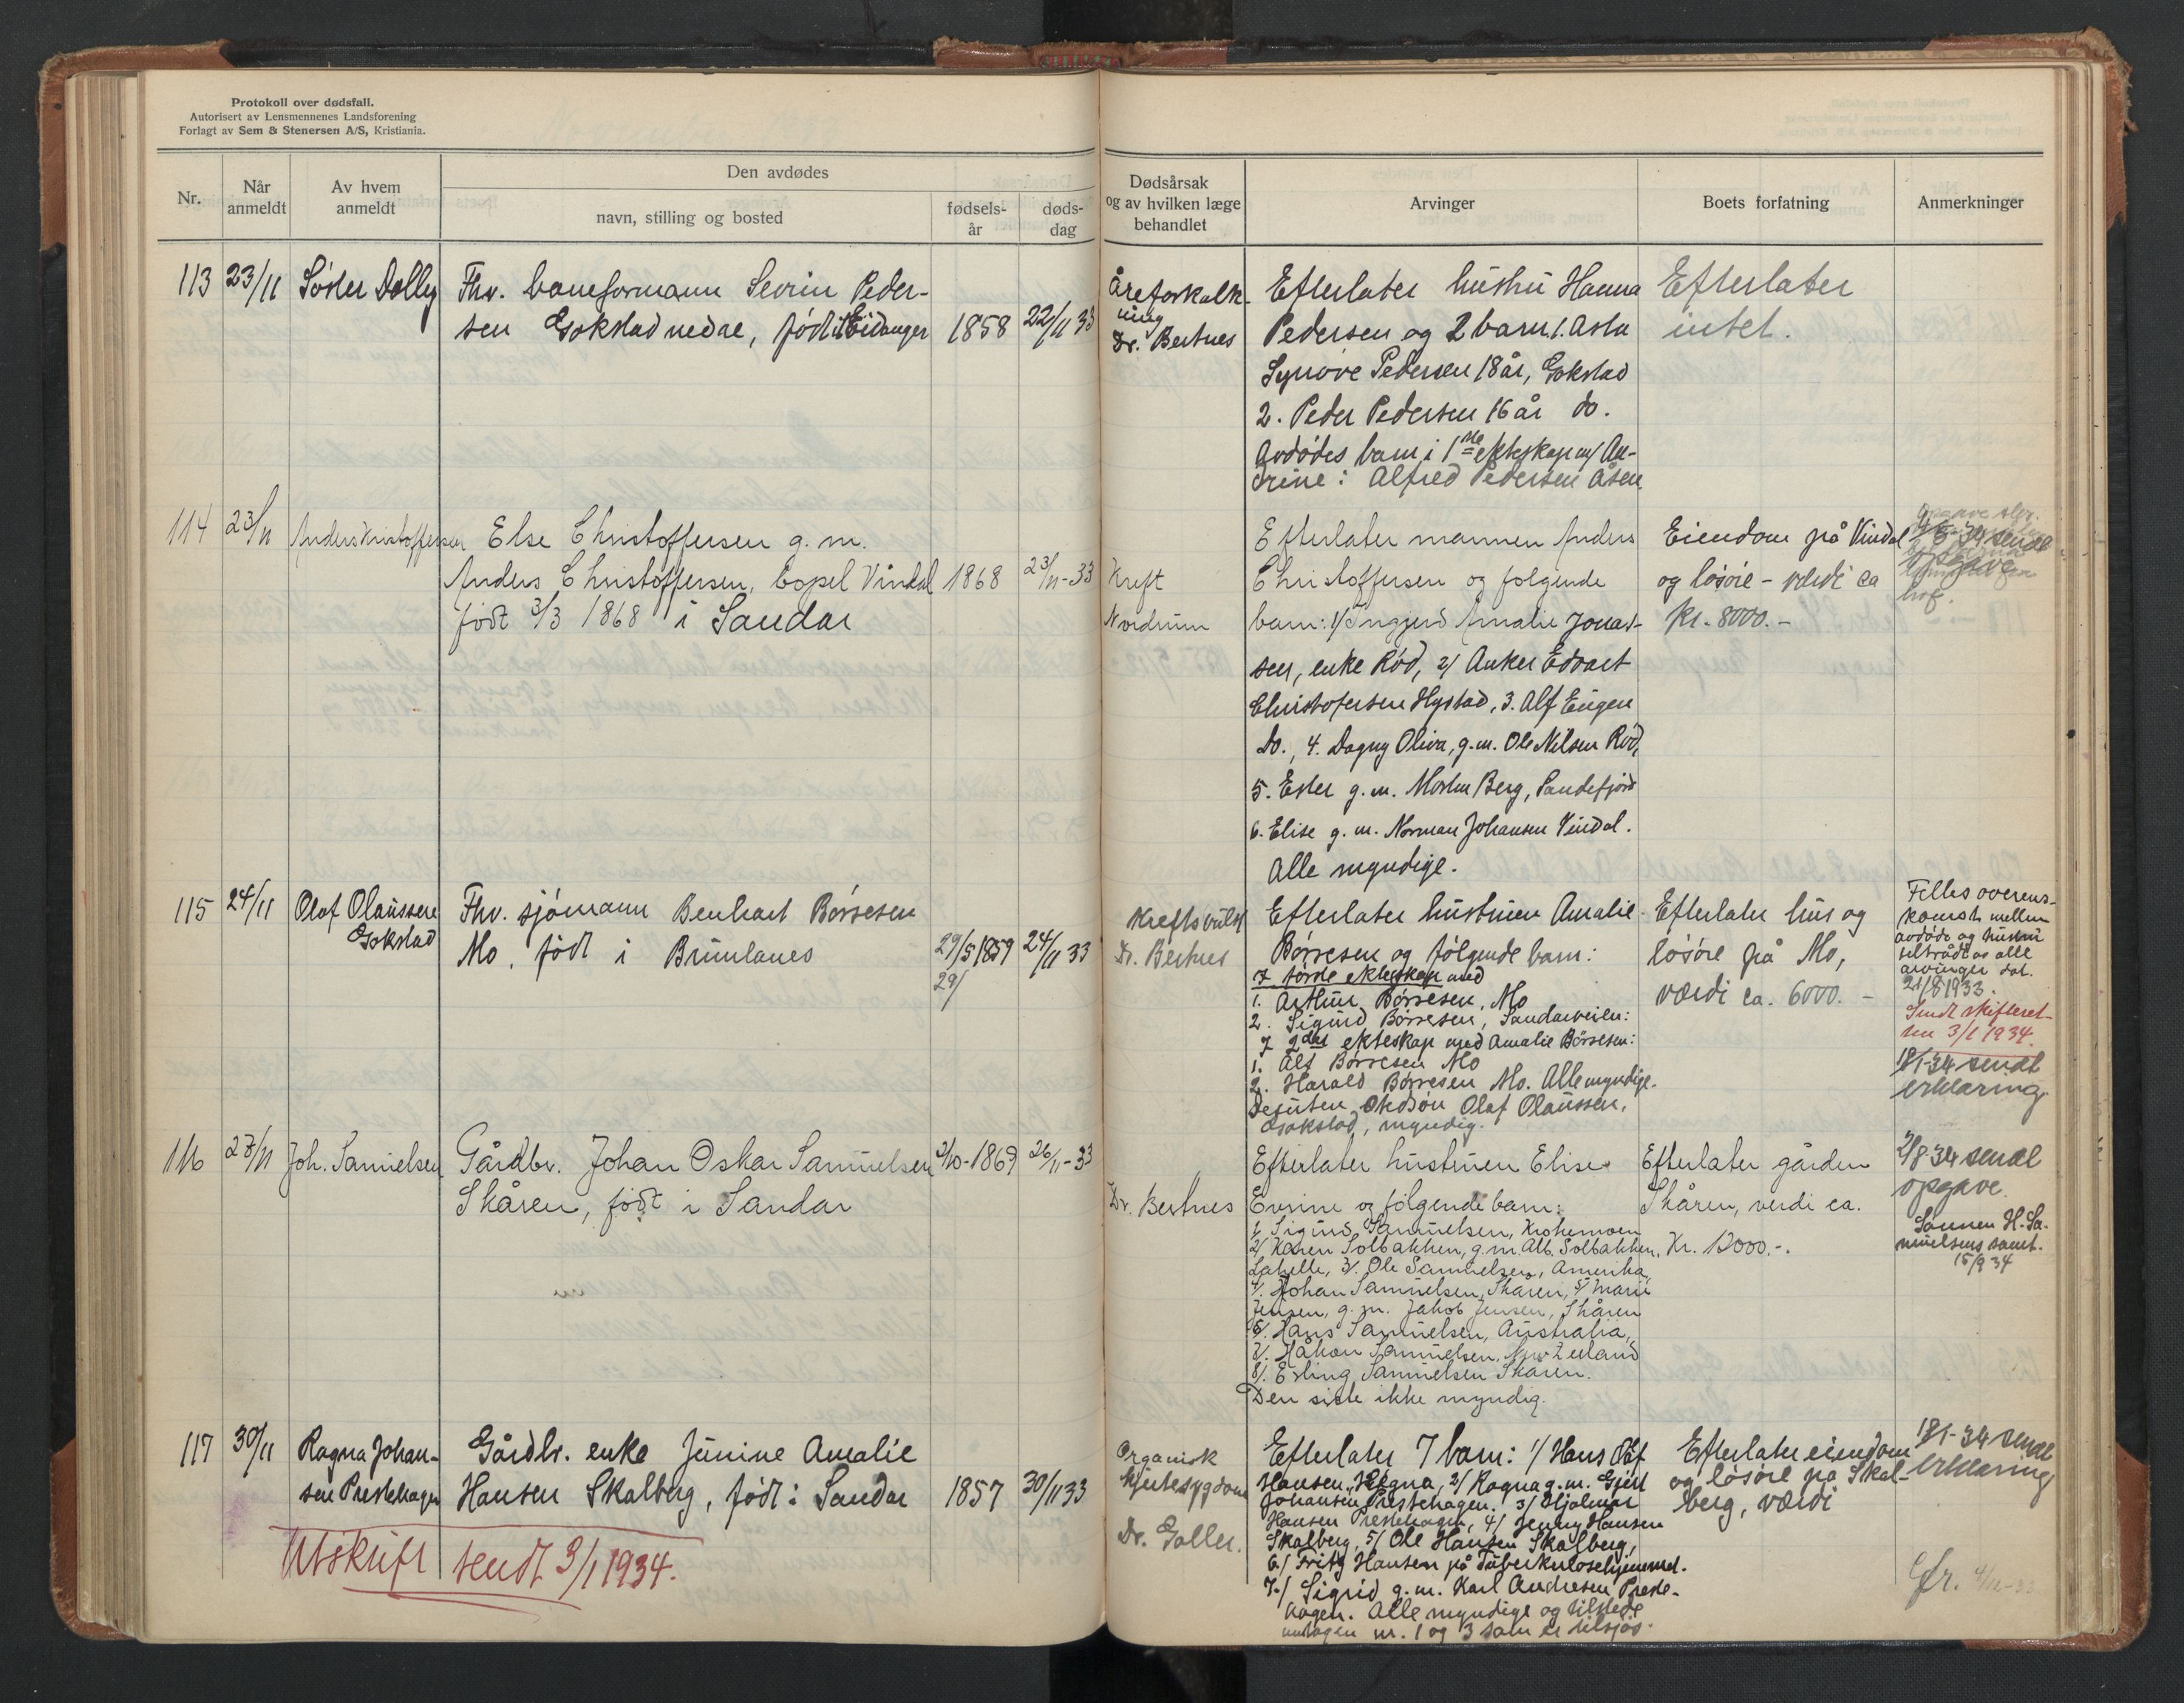 Protokoll over dødsfall.
Autorisert av Lensmennenes Landsforening
Forlagt av Sem & Stenersen A/S, Kristiania.
Nr.
Når anmeldt
Av hvem anmeldt
Den avdødes
navn, stilling og bosted
fødsels-år
døds-dag
Dødsårsak
og av hvilken læge
behandlet
Arvinger
Boets forfatning
Anmerkninger
113 23/11 Søster Dolly
Fhv. baneformann Sevrin Peder-
sen Gokstad nedre, født i Eidanger 1858 22/11 33
Åreforkalk-
ning
Dr. Bertnes
Efterlater hustru Hanna
Pedersen og 2 barn. 1. Asta
Synøve Pedersen 18 år, Gokstad
2. Peder Pedersen 16 år do.
Avdødes barn i 1ste ekteskap m/ An-
drine: Alfred Pedersen Åsen
Efterlater
intet.
114 23/11 Anders Kristoffersen
Else Christoffersen g.m.
Anders Christoffersen, bopel Vindal 1868 23/11-33
født 3/3 1868 i Sandar
Kreft
Nordrum
Efterlater mannen Anders
Christoffersen og følgende
barn: 1/ Ingjerd Amalie Jonas-
sen, enke Rød, 2/ Anker Edvart
Christofersen Hystad, 3. Alf Eugen
do., 4. Dagny Oliva, g.m. Ole Nilsen Rød,
5. Ester g.m. Morten Berg, Sandefjord
6. Elise g.m. Norman Johansen Vindal.
Alle myndige.
Eiendom på Vindal
og løsøre - verdi ca
kr. 8000.-
sendt
opgave
115 24/11 Olaf Olaussen
Gokstad
Fhv. sjømann Benhart Børresen
Mo, født i Brunlanes
29/5 1859 24/11 33
29/
Kreftsvulst
Dr. Bertnes
Efterlater hustruen Amalie
Børresen og følgende barn:
I første ekteskap med
1. Arthur Børresen, Mo
2. Sigurd Børresen, Sandarveien:
I 2det ekteskap med Amalie Børresen:
1. Alf Børresen Mo
2. Harald Børresen Mo. Alle myndige.
Desuten stedsøn Olaf Olaussen,
Gokstad, myndig.
Efterlater hus og
løsøre på Mo,
værdi ca. 6000.-
Felles overens-
komst mellem
avdøde og hustru
seltrådt av alle
arvinger dat.
21/8 1933.
Sendt skifteret-
ten 3/1 1934.
18/1-34 sendt
erklæring
116 27/11 Joh. Samuelsen
Gårdbr. Johan Oskar Samuelsen 2/10-1869 26/11-33
Skåren, født i Sandar
Dr. Bertnes
Efterlater hustruen Elise
Evrine og følgende barn:
1/ Sigurd Samuelsen, Krokemoen
2/ Karen Solbakken, g.m. Alb. Solbakken,
Lahelle, 3/. Ole Samuelsen, Amerika
4/. Johan Samuelsen, Skåren, 5/ Marie
Jensen, g.m. Jakob Jensen, Skåren
6/. Hans Samuelsen, Australia,
7/. Håkon Samuelsen, New Zeeland
8/. Erling Samuelsen Skåren.
Den siste ikke myndig.
Efterlater gården
Skåren, verdi ca.
Kr. 12000.-.
2/8-34 sendt
opgave.
Sønnen H. Sa-
muelsens samt.
15/9 34
117 30/11 Ragna Johan-
sen Prestehagen
Gårdbr. enke Junine Amalie
Hansen Skalberg, født i Sandar 1857 30/11 33
Organisk
hjertesygdom
Dr. Galler.
Efterlater 7 barn: 1/ Hans Olaf
Hansen, Hegna, 2/ Ragna g.m. Gjert
Johansen, Prestehagen. 3/ Hjalmar
Hansen Prestehagen, 4/ Jenny Hansen
Skalberg, 5/ Ole Hansen Skalberg,
6/ Fritz Hansen på Tuberkulosehjemmet.
7/ Sigrid g.m. Karl Andresen Preste-
hagen. Alle myndige og tilstede
undtagen nr. 1 og 3 som er tilsjøs.
Efterlater eiendom
og løsøre på Skal-
berg, værdi
18/1-34 sendt
erklæring
Utskrift sendt 3/1 1934.